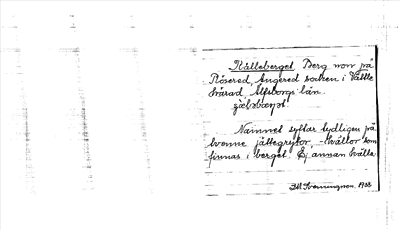 Källeberget. Berg norr på
Rösered, Angered socken i Vättle
härad, Älfsborgs län.
Namnet syftar tydligen på
tvenne jättegrytor, - källor som
finnas i berget. Ej annan källa.
1928